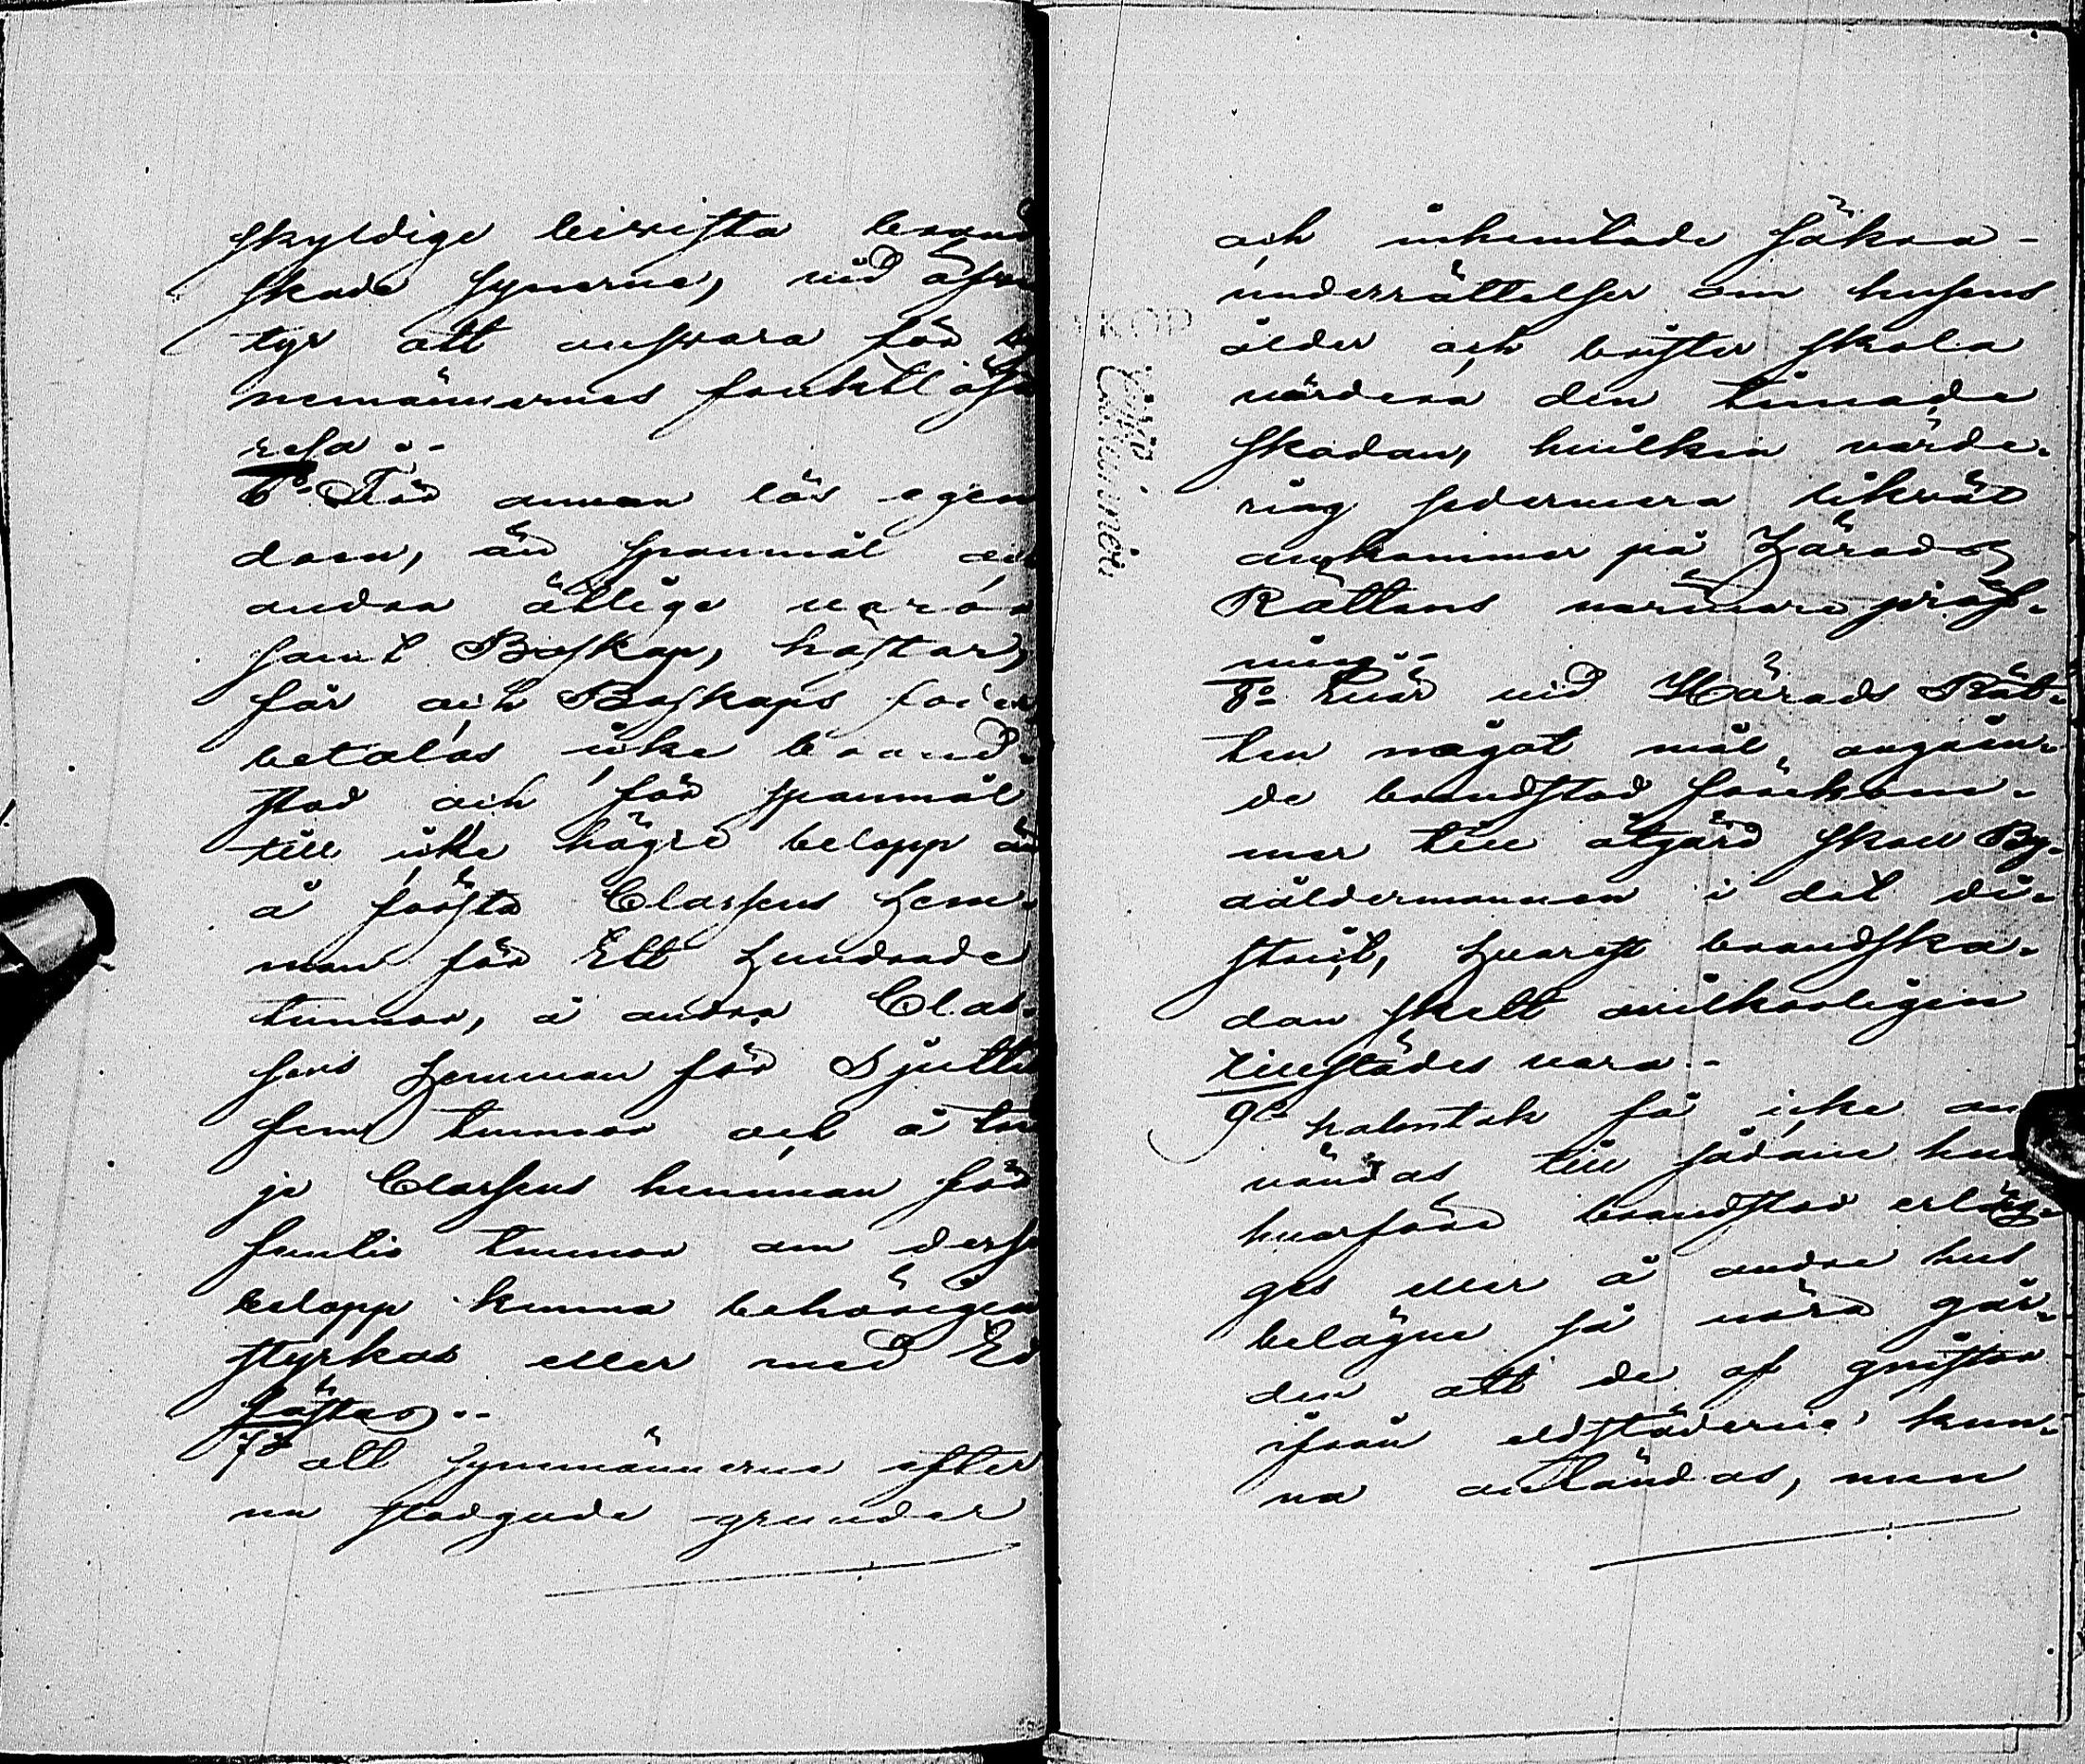 skyldige bivista brand
skade synerne, vid äfven
tyr att ansvara för sy
nemännernes fruktl ösa
resa..
6o För annan lös egen
dom, än spanmål och
andra ätlige varor
samt Boskap, hästar,
får och Boskaps foder
betalas icke brand-
stod och för spanmål
till icke högre belopp än
å första Classens hem-
man för Ett hundrade
tunnor, å andra Clas-
sens hemman för Sjutti
fem tunnor och å tre
je Classens hemman för
femtio tunnor om dess
belopp kunna behörigen
styrkas eller med Ed
fästas..
7o att synemännerne efter
nu stadgade grunder
och inhemtade säkra-
underrättelser om husens
ålder och brister skola
värdera den timade
skadan, hvilken värde-
ring sedermera likväl
ankommer på Härads
Rättens närmare pröf-
ning..
8o När vid Härads Rät-
ten något mål angåen-
de brandstod förekom-
mer till åtgärd skall By-
åldermannen i det di-
strict, hvarest brandska-
dan skett ovilkorligen
tillstädes vara.-
9o halmtak få icke an
vändas till sådane hus
hvarföre brandstod erläg-
ges eller å andre hus
belägne så nära går-
den att de af gnistor
ifrån eldstäderne kun-
na antändas, men